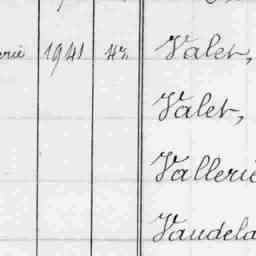 erie 1941 42 Valet,
Valet,
Vallerie
Vaudela